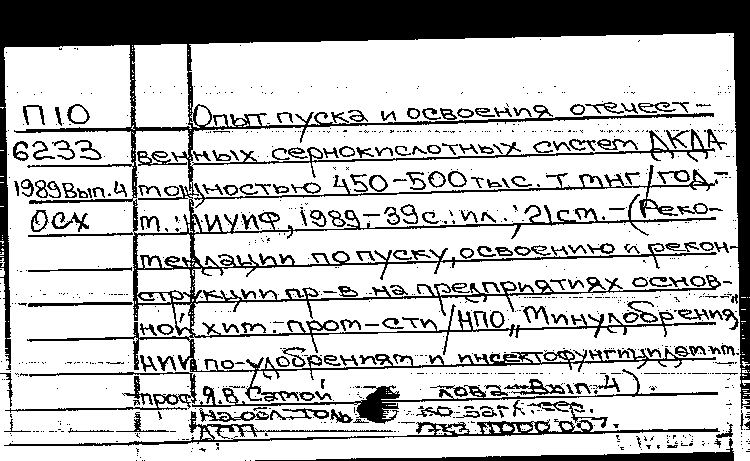 П10 Опыт пуска и освоения отечест-
6233 венных сернокислотных систем ДКДА
1989 Вып.4 мощностью 450-500 тыс. т мнг/год.-
ОСХ м.: НИУИФ, 1989.- 39с.: ил.; 21см. - (Реко-
мендации по пуску, освоению и рекон-
струкции пр-в на предприятиях основ-
ной хим. пром-сти /НПО „Минудобрения",
НИИ по удобрениям и инсектофунгицидам им.
проф. Я.В. Самойлова. Вып. 4).
На обл. только загл. сер.
ДСП. Экз N000 007.